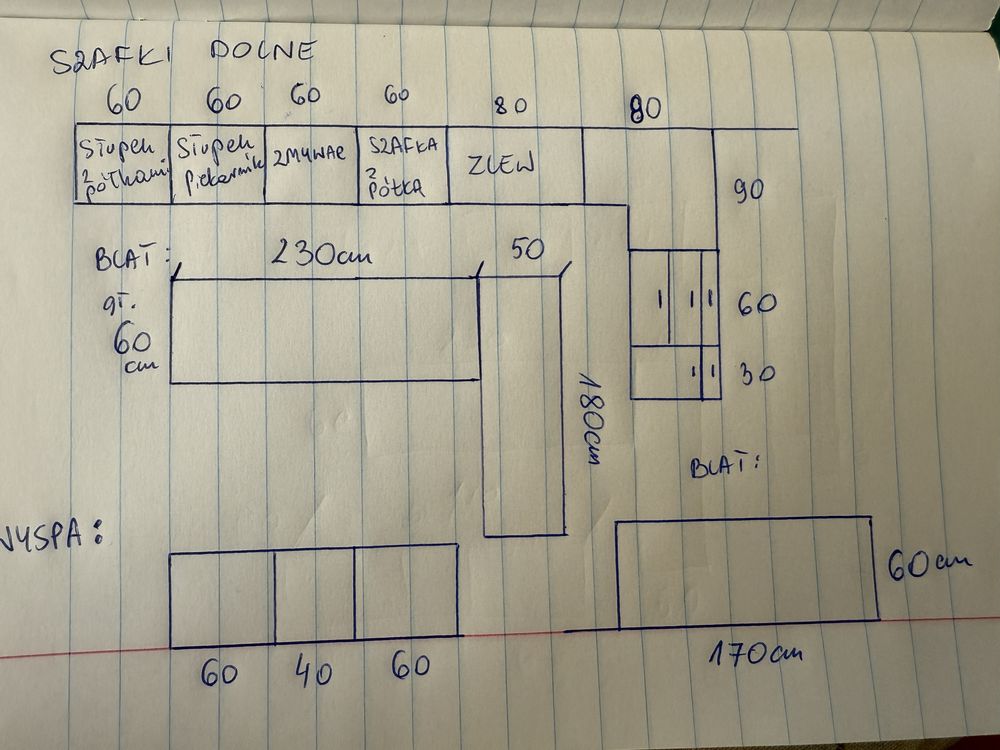 SZAFKI DOLNE
60 60 60 60 80 80
Słupek z półkami
Słupek Piekarnik
ZMYWAR
SZAFKA z PÓŁKĄ
ZLEW
90
60
30
BLAT:
230cm
50
gł.
60
cm
180cm
BLAT:
WYSPA:
60 40 60
60cm
170cm